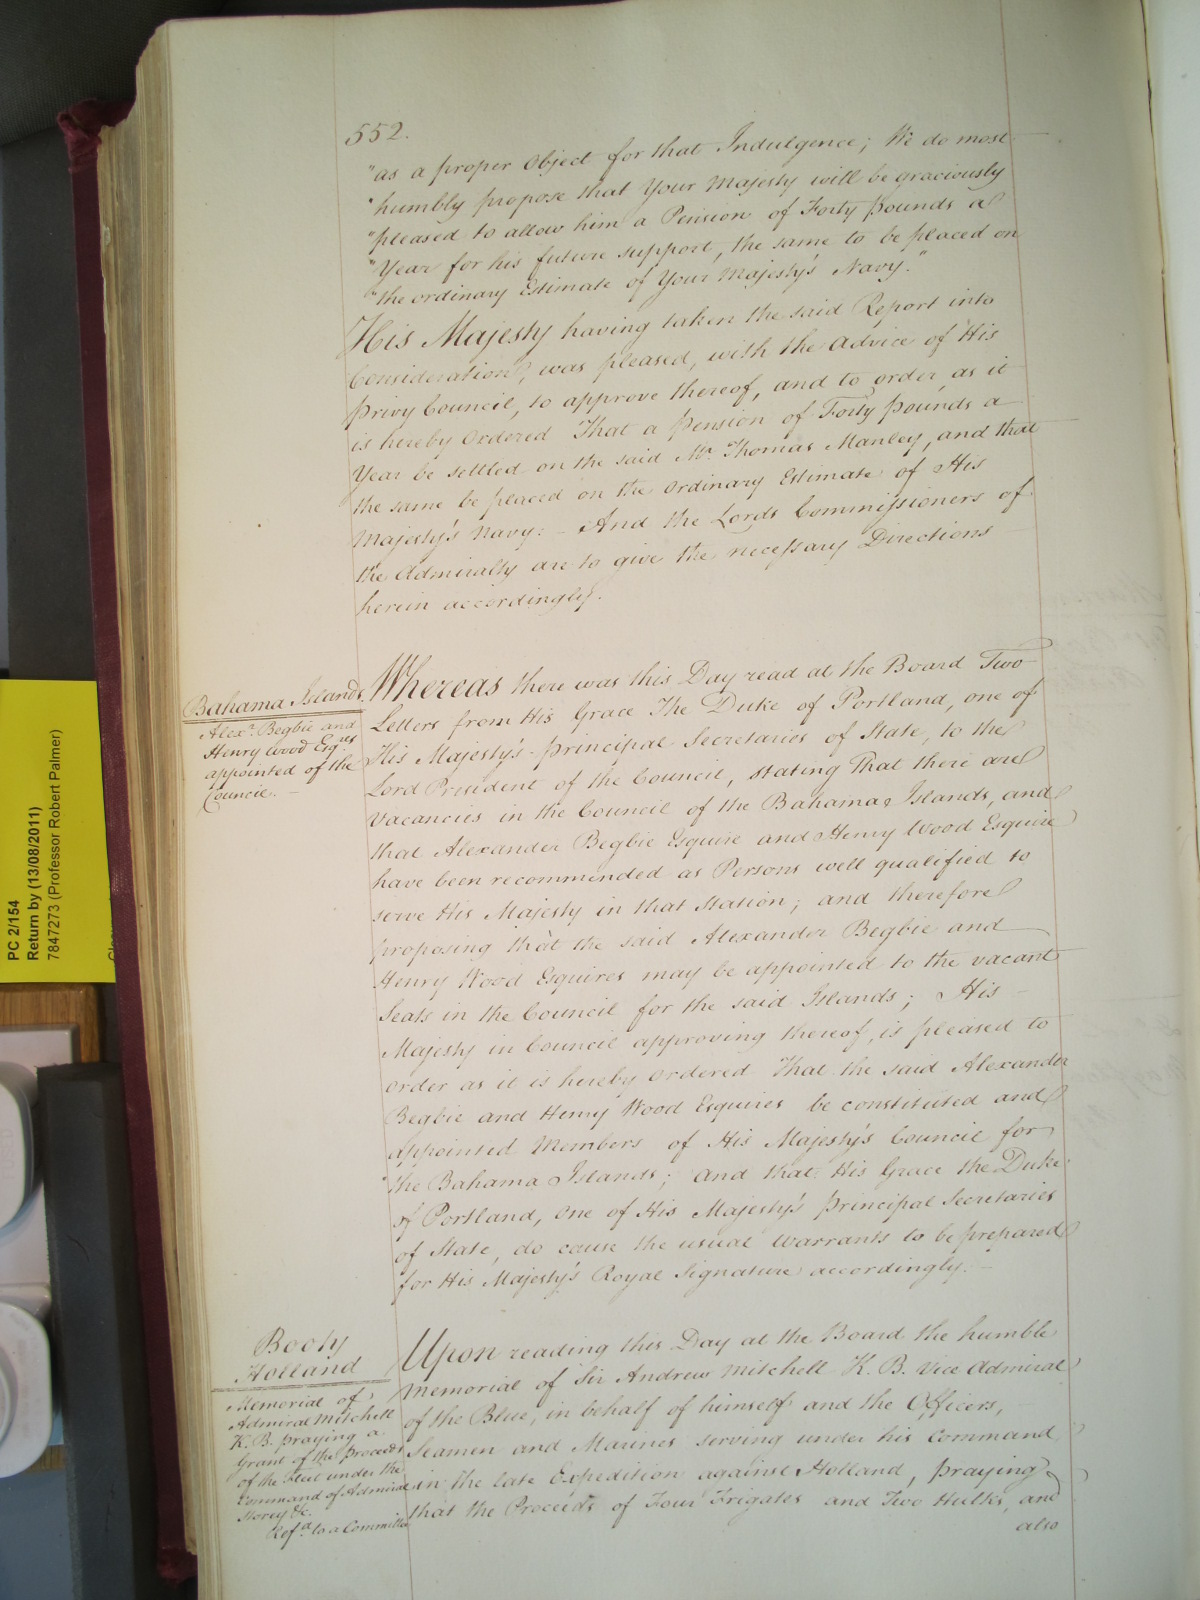 552.
"as a proper Object for that Indulgence; We do most
"humbly propose that Your Majesty will be graciously
"pleased to allow him a Pension of Forty Pounds a
"Year for his future support, the same to be placed on
"the ordinary Estimate of Your Majesty's Navy."
His Majesty having taken the said Report into
Consideration, was pleased, with the Advice of His
Privy Council, to approve thereof, and to order, as it
is hereby Ordered That a Pension of Forty Pounds a
Year be settled on the said Mr. Thomas Manley, and that
the same be placed on the Ordinary Estimate of His
Majesty's Navy: - And the Lords Commissioners of
the Admiralty are to give the necessary Directions
herein accordingly.
Bahama Islands.
Alexr. Begbie and
Henry Wood Esqres
appointed of the
Council. -
Whereas there was this Day read at the Board Two
Letters from His Grace The Duke of Portland, one of
His Majesty's Principal Secretaries of State, to the
Lord President of the Council, stating That there are
Vacancies in the Council of the Bahama Islands, and
that Alexander Begbie Esquire and Henry Wood Esquire
have been recommended as Persons well qualified to
serve His Majesty in that Station; and therefore
proposing that the said Alexander Begbie and
Henry Wood Esquires may be appointed to the vacant
Seats in the Council for the said Islands; His
Majesty in Council approving thereof, is pleased to
order as it is hereby Ordered That the said Alexander
Begbie and Henry Wood Esquires be constituted and
appointed Members of His Majesty's Council for
the Bahama Islands; And that His Grace the Duke
of Portland, One of His Majesty's Principal Secretaries
of State, do cause the usual Warrants to be prepared
for His Majesty's Royal Signature accordingly. -
Booty
Holland
Memorial of
Admiral Mitchell
K. B. praying a
Grant of the Proceeds
of the Fleet under the
Command of Admiral
Storey &c.
Refd. to a Committee
Upon reading this Day at the Board the humble
Memorial of Sir Andrew Mitchell K. B. Vice Admiral
of the Blue, in behalf of himself and the Officers,
Seamen and Marines serving under his Command
in the late Expedition against Holland, praying
that the Proceeds of Four Frigates and Two Hulks, and
also
PC 2/154
Return by (13/08/2011)
7847273 (Professor Robert Palmer)